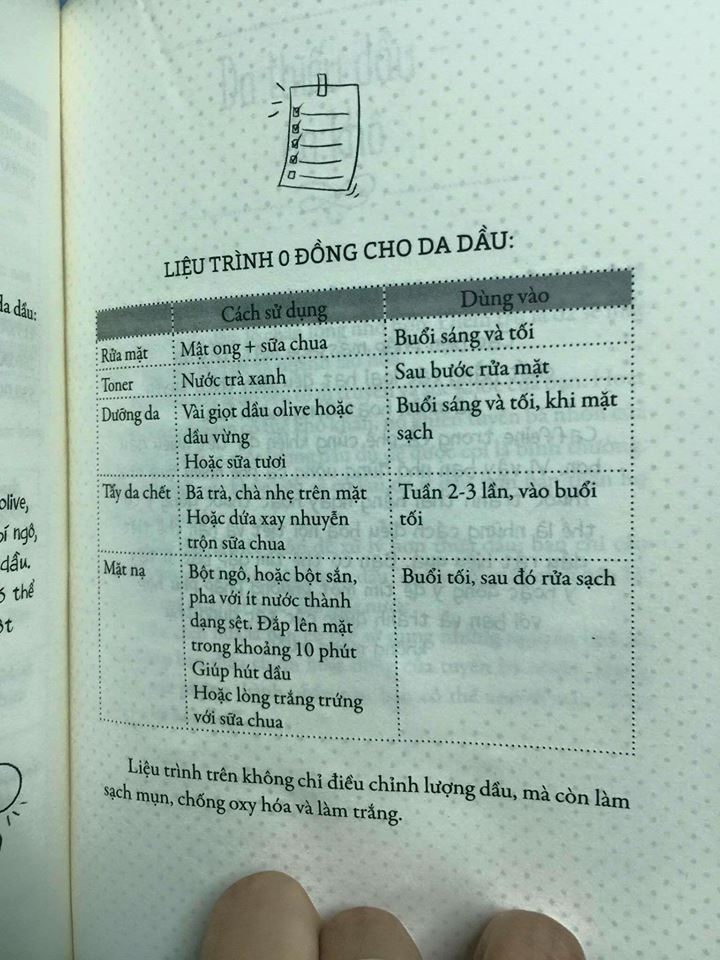 da dầu:
olive,
bí ngô,
dầu.
thể
LIỆU TRÌNH 0 ĐỒNG CHO DA DẦU:
Cách sử dụng
Dùng vào
Rửa mặt
Mật ong + sữa chua
Buổi sáng và tối
Toner
Nước trà xanh
Sau bước rửa mặt
Dưỡng da
Vài giọt dầu olive hoặc
dầu vừng
Hoặc sữa tươi
Buổi sáng và tối, khi mặt
sạch
Tẩy da chết
Bã trà, chà nhẹ trên mặt
Hoặc dứa xay nhuyễn
trộn sữa chua
Tuần 2-3 lần, vào buổi
tối
Mặt nạ
Bột ngô, hoặc bột sắn,
pha với ít nước thành
dạng sệt. Đắp lên mặt
trong khoảng 10 phút
Giúp hút dầu
Hoặc lòng trắng trứng
với sữa chua
Buổi tối, sau đó rửa sạch
Liệu trình trên không chỉ điều chỉnh lượng dầu, mà còn làm
sạch mụn, chống oxy hóa và làm trắng.